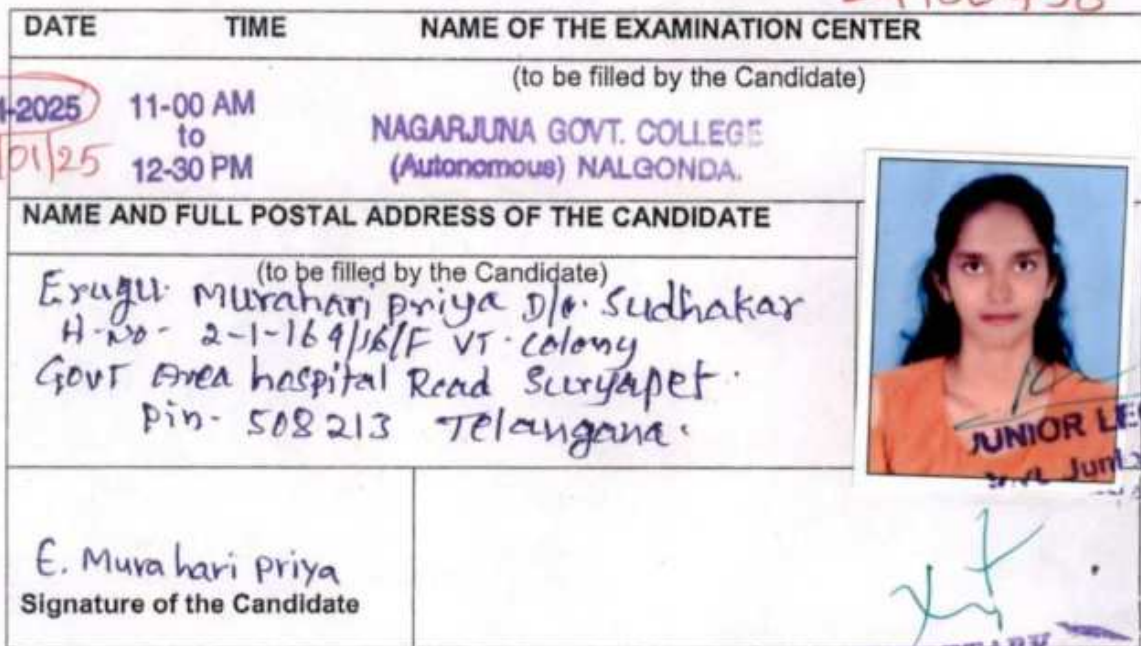 DATE TIME NAME OF THE EXAMINATION CENTER
(to be filled by the Candidate)
-2025 11-00 AM
to
01/25 12-30 PM
NAGARJUNA GOVT. COLLEGE
(Autonomous) NALGONDA.
NAME AND FULL POSTAL ADDRESS OF THE CANDIDATE
(to be filled by the Candidate)
Erugu Murahari priya D/o. Sudhakar
H-No- 2-1-169/16/F VT. Colony
Govt Area hospital Road Suryapet.
Pin- 508213 Telangana.
JUNIOR LE
E. Murahari priya
Signature of the Candidate